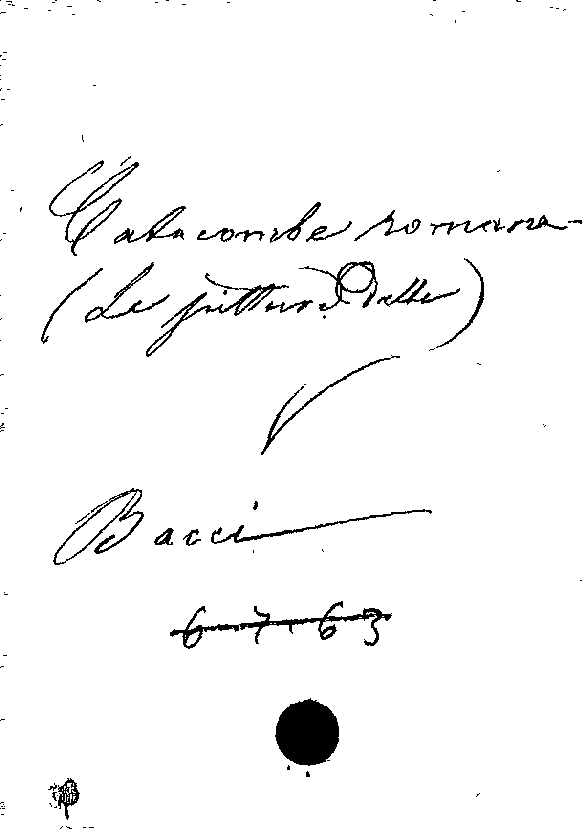 Catacombe romane
(Le pitture delle)
Bacci
6.7.63